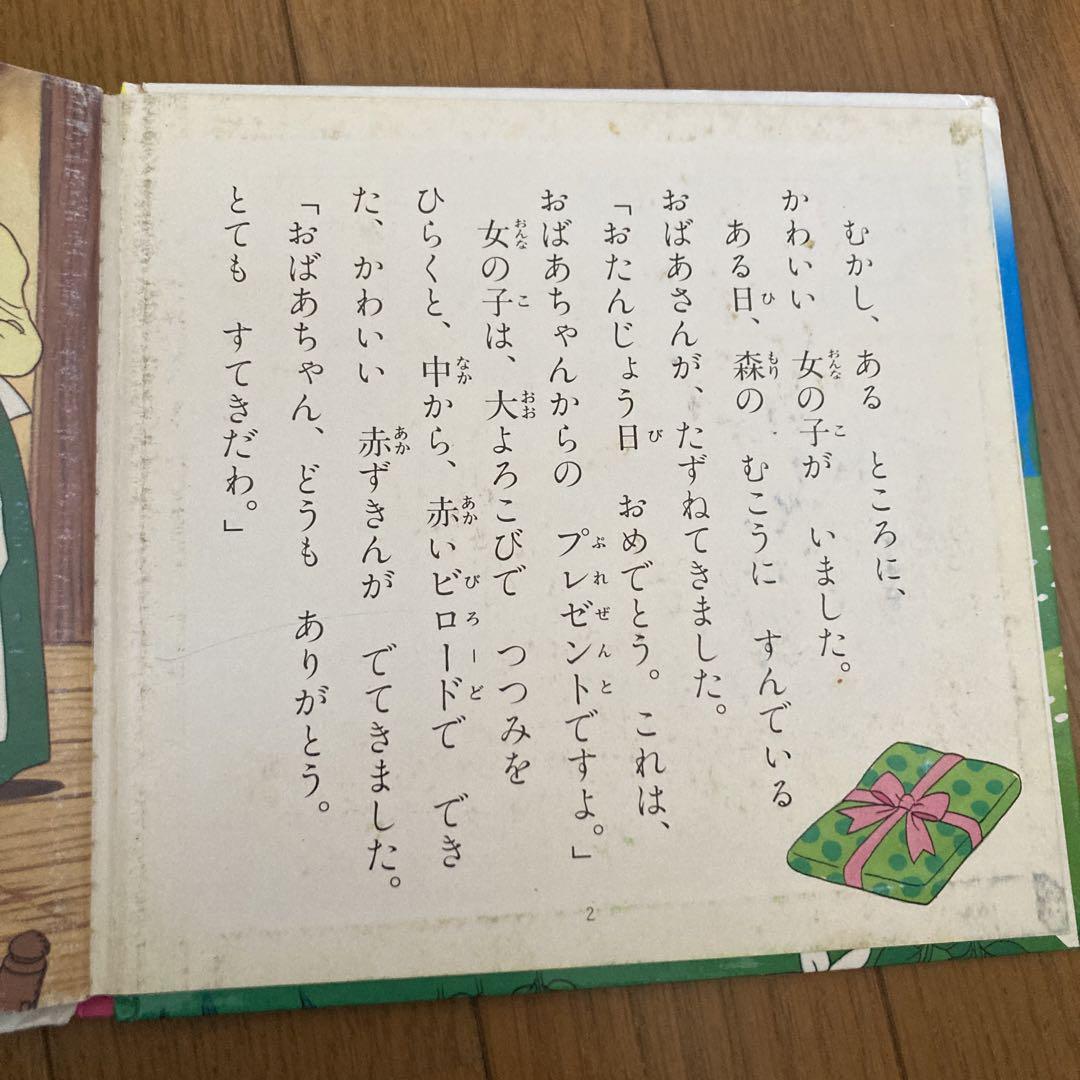 むかし、ある ところに、
かわいい 女の子が いました。
ある日、森の むこうに すんでいる
おばあさんが、たずねてきました。
「おたんじょう日 おめでとう。これは、
おばあちゃんからの プレゼントですよ。」
女の子は、大よろこびで つつみを
ひらくと、中から、赤いビロードで でき
た、かわいい 赤ずきんが でてきました。
「おばあちゃん、どうも ありがとう。
とても すてきだわ。」
2